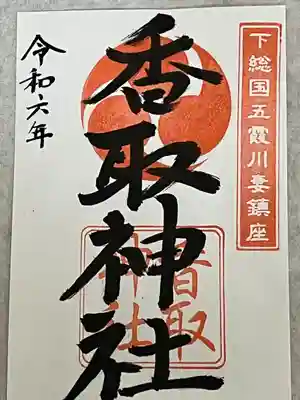 下総国五霞川妻鎮座
香取神社
令和六年
香取
神社